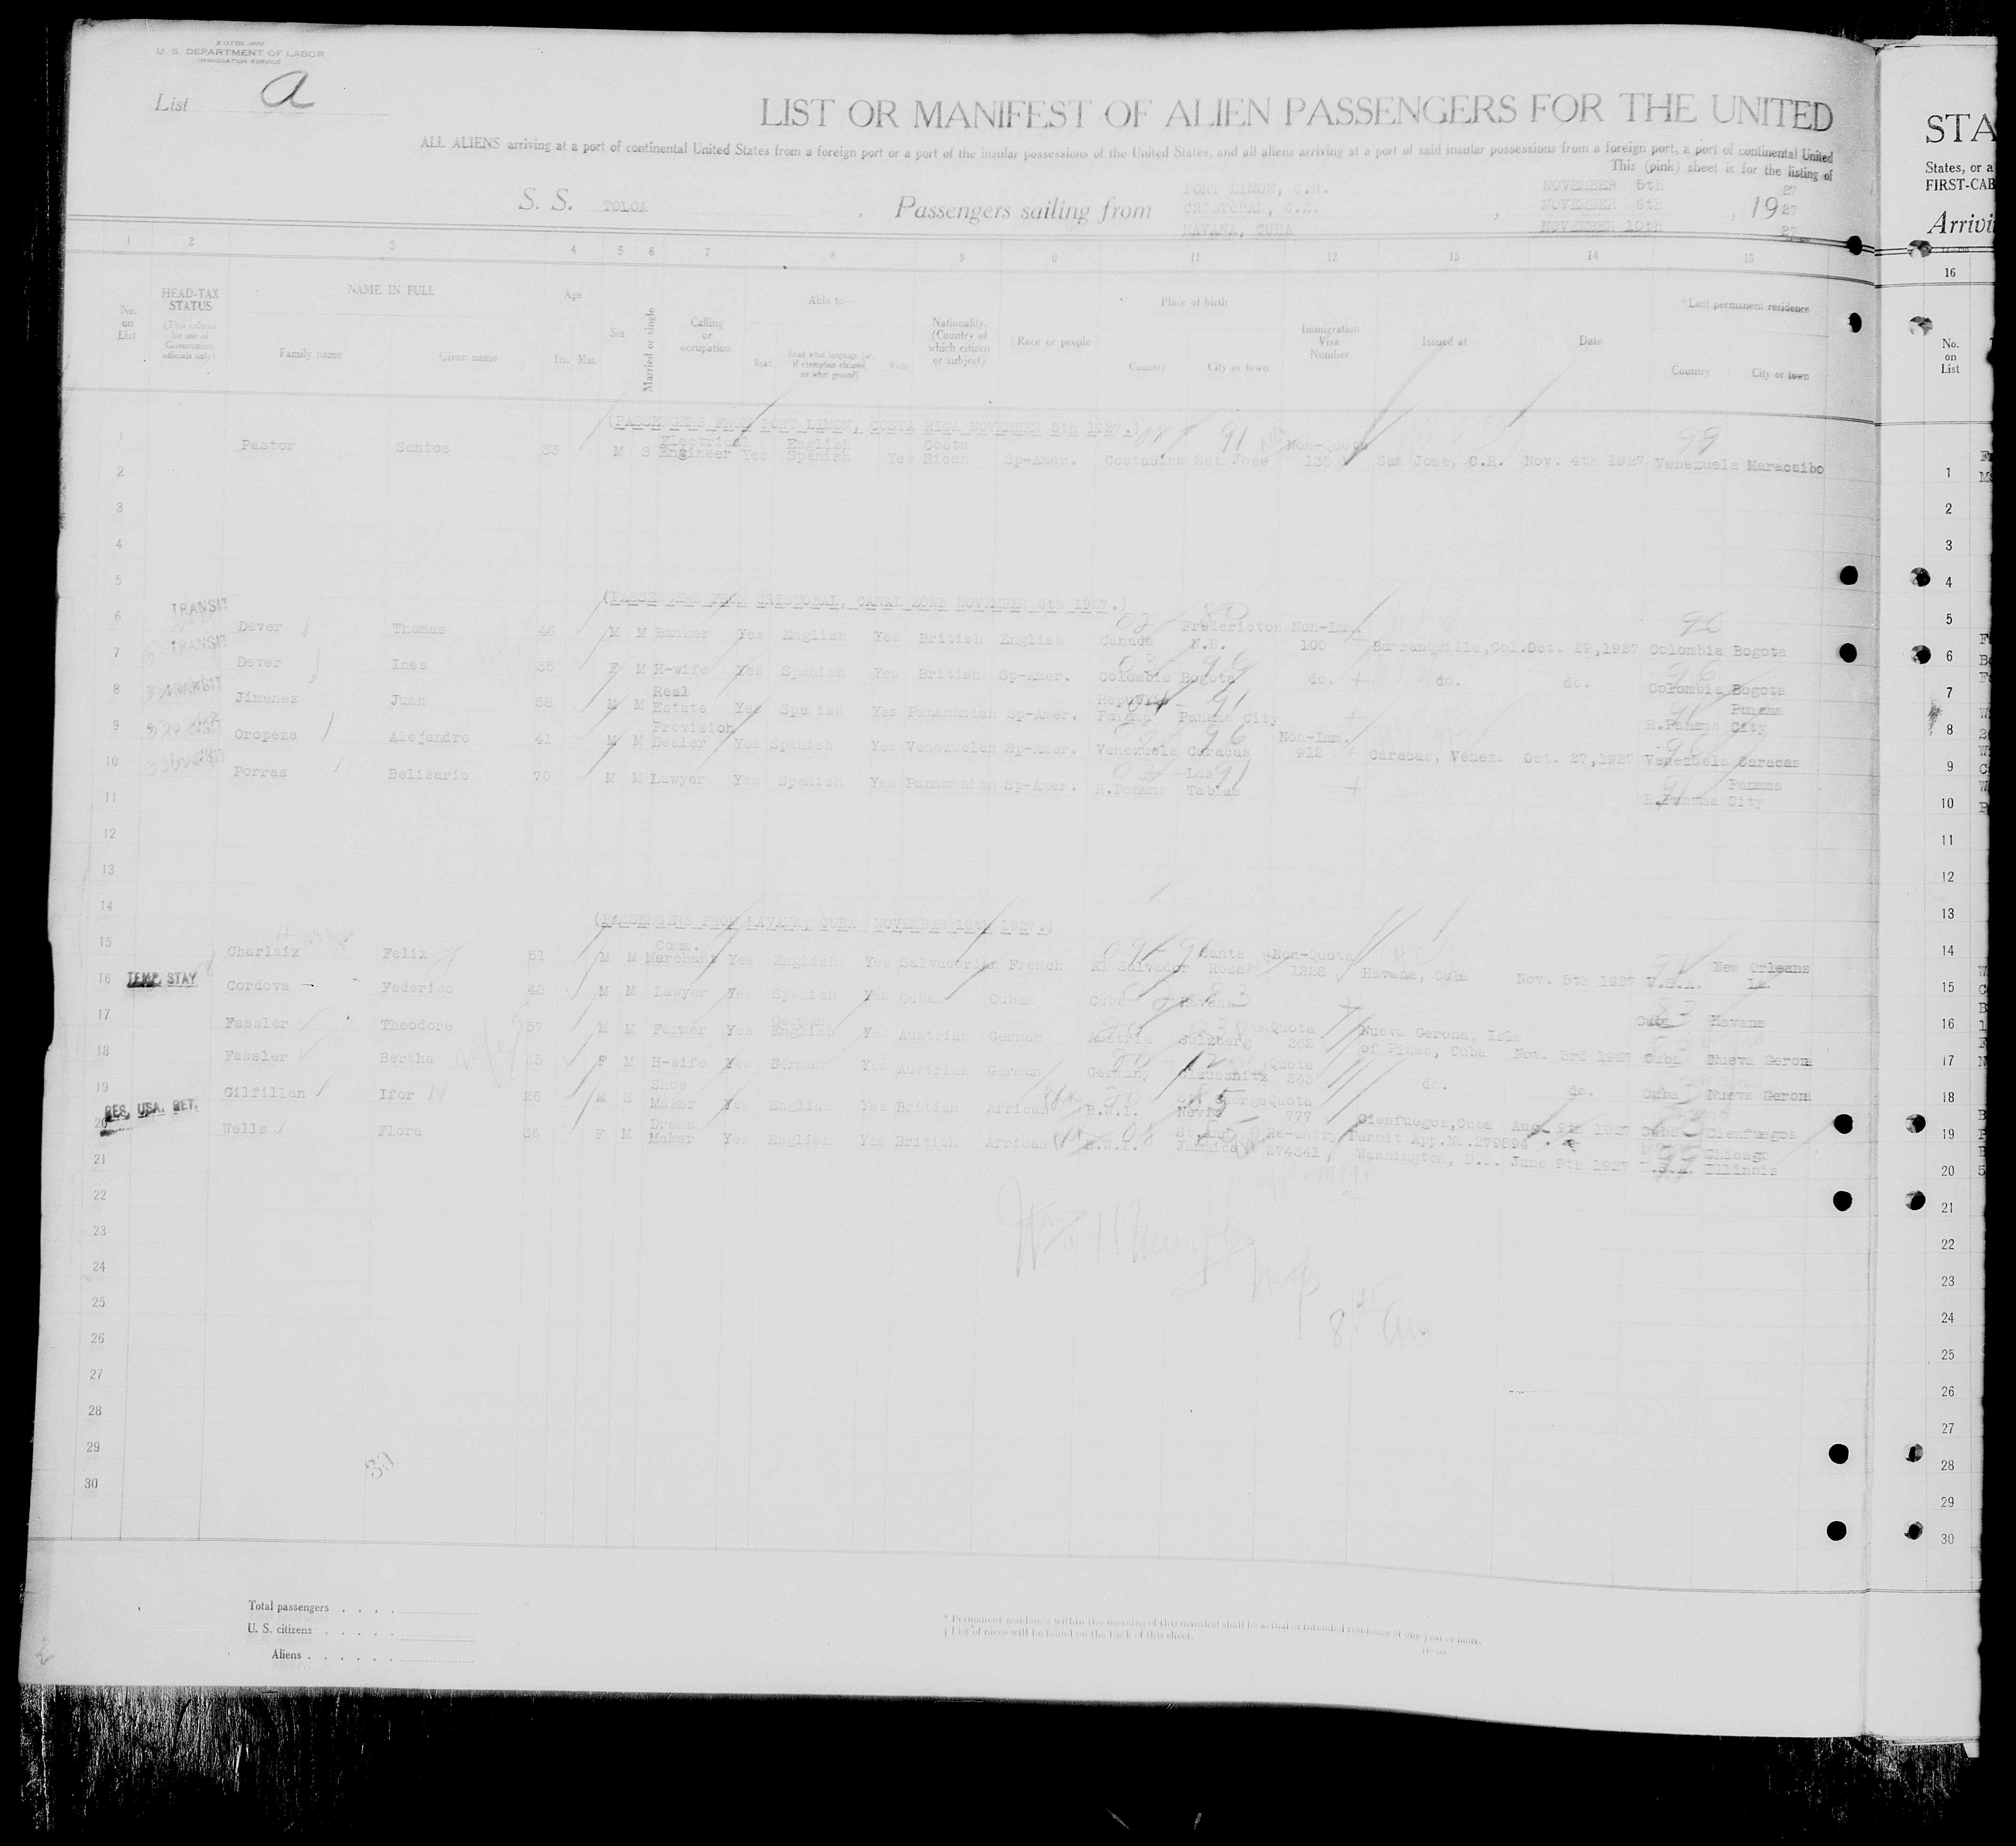 U. S. DEPARTMENT OF LABOR
IMMIGRATION SERVICE
List a
LIST OR MANIFEST OF ALIEN PASSENGERS FOR THE UNITED
ALL ALIENS arriving at a port of continental United States from a foreign port or a port of the insular possessions of the United States, and all aliens arriving at a port of said insular possessions from a foreign port, a port of continental United
This (pink) sheet is for the listing of
S. S. TOLOA , Passengers sailing from PORT LIMON, C.R. , NOVEMBER 5th , 19 27
CRISTOBAL, C.Z. NOVEMBER 6th 27
HAVANA, CUBA NOVEMBER 10th 27
1 2 3 4 5 6 7 8 9 0 11 12 13 14 15
No. on List
HEAD-TAX STATUS
(This column for use of Government officials only)
NAME IN FULL
Family name Given name
Age
Yrs. Mos.
Sex
Married or single
Calling or occupation
Able to—
Read
Read what language [or, if exemption claimed, on what ground]
Write
Nationality. (Country of which citizen or subject)
†Race or people
Place of birth
Country City or town
Immigration Visa Number
Issued at—
Date
*Last permanent residence
Country City or town
(PASSENGERS FROM PORT LIMON, COSTA RICA NOVEMBER 5th 1927.)
1 Pastor Santos 33 M S Electrical Engineer Yes English Spanish Yes Costa Rican Sp-Amer. CostaRica San Jose Non-Quota 135 San Jose, C.R. Nov. 4th 1927 Venezuela Maracaibo
2
3
4
5
(PASSENGERS FROM CRISTOBAL, CANAL ZONE NOVEMBER 6th 1927.)
6 TRANSIT Dever Thomas 46 M M Banker Yes English Yes British English Canada Fredericton N.B. Non-Imm. 100 Barranquilla,Col. Oct. 29,1927 Colombia Bogota
7 TRANSIT Dever Ines 38 F M H-wife Yes Spanish Yes British Sp-Amer. Colombia Bogota do. do. do. Colombia Bogota
8 TRANSIT Jimenez Juan 58 M M Real Estate Yes Spanish Yes Panamanian Sp-Amer. Republic Panama Panama City R.Panama Panama City
9 Oropeza Alejandro 41 M M Provision Dealer Yes Spanish Yes Venezuelan Sp-Amer. Venezuela Caracas Non-Imm. 912 Caracas, Venez. Oct. 27,1927 Venezuela Caracas
10 Porras Belisario 70 M M Lawyer Yes Spanish Yes Panamanian Sp-Amer. R.Panama Las Tablas R.Panama Panama City
11
12
13
14
(PASSENGERS FROM HAVANA, CUBA NOVEMBER 10th 1927.)
15 Charlaix Felix 51 M M Comm. Merchant Yes English Yes Salvadorian French El Salvador Santa Rosa Non-Quota 1228 Havana, Cuba Nov. 5th 1927 U.S.A. New Orleans La.
16 TEMP. STAY Cordova Federico 48 M M Lawyer Yes Spanish Yes Cuban Cuban Cuba Havana Cuba Havana
17 Fassler Theodore 57 M M Farmer Yes German English Yes Austrian German Austria Sulzberg Quota 262 Nueva Gerona, Isle of Pines, Cuba Nov. 3rd 1927 Cuba Nueva Gerona
18 Fassler Bertha wife 55 F M H-wife Yes German Yes Austrian German Germany Claussnitz Quota 263 do. do. Cuba Nueva Gerona
19 Gilfillan Ifor 26 M S Shoe Maker Yes English Yes British African B.W.I. St. George Nevis Quota 777 Cienfuegos,Cuba Aug. 9th 1927 Cuba Cienfuegos
20 RES. USA. RET. Wells Flora 36 F M Dress Maker Yes English Yes British African B.W.I. Jamaica Re-entry 274341 Permit App.No.279894 Washington, D.C. June 9th 1927 U.S.A. Chicago Illinois
21
22
23
24
25
26
27
28
29
30
Total passengers . . . .
U. S. citizens . . . . .
Aliens . . . . . .
* Permanent residence within the meaning of this manifest shall be actual or intended residence of one year or more.
† List of races will be found on the back of this sheet.
STA
States, or a
FIRST-CAB
Arrivi
16
No. on List
1
2
3
4
5
6
7
8
9
10
11
12
13
14
15
16
17
18
19
20
21
22
23
24
25
26
27
28
29
30